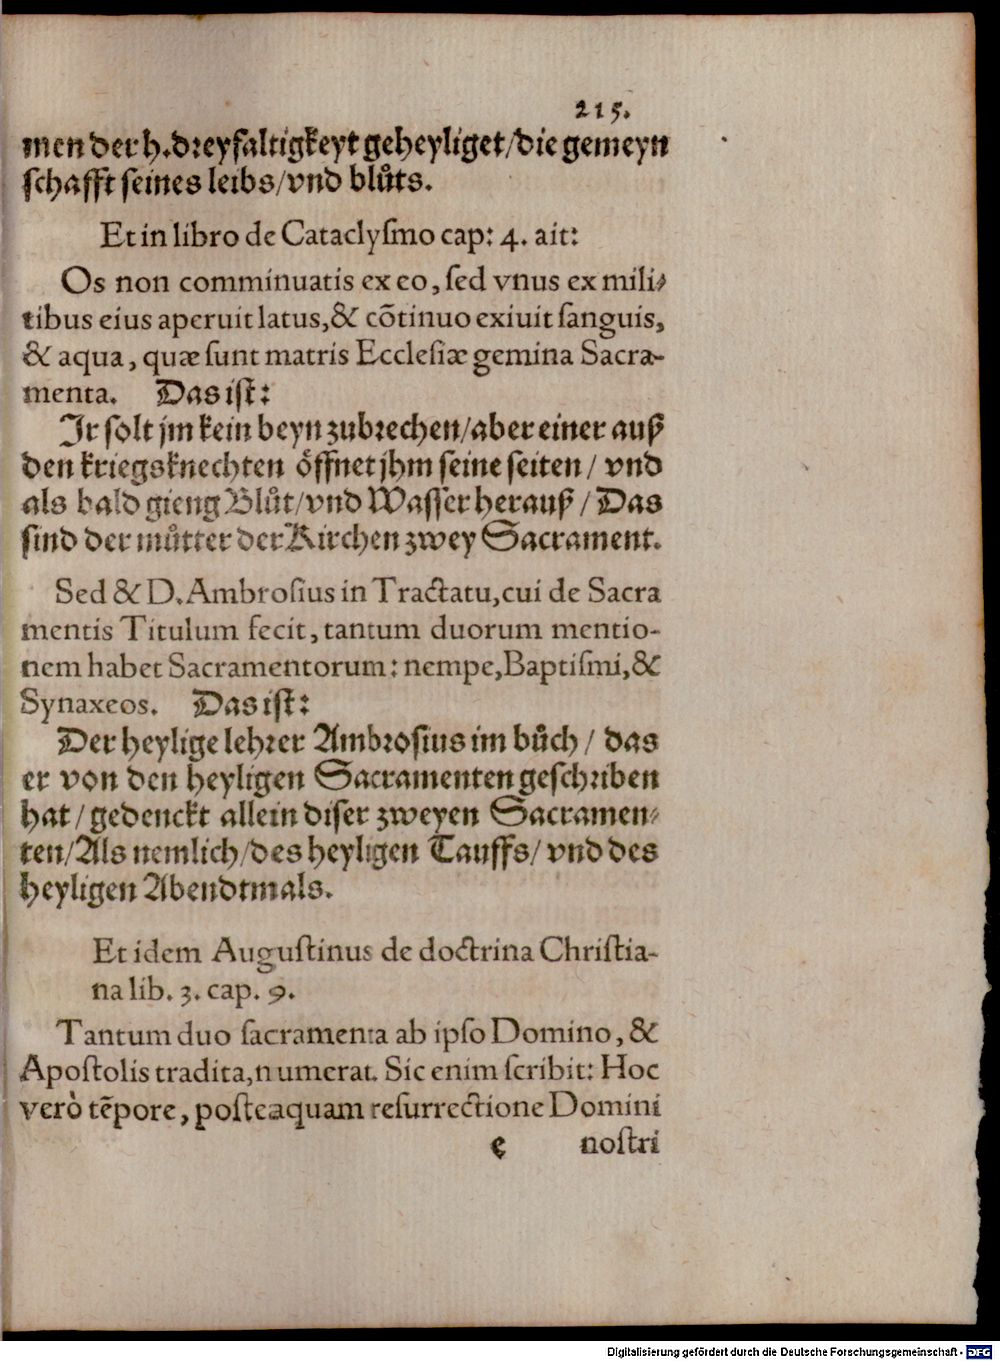 215.
men der h. dreyfaltigkeyt geheyliget/die gemeyn
schafft seines leibs/vnd blůts.
Et in libro de Cataclyſmo cap: 4. ait:
Os non comminuatis ex eo, ſed vnus ex mili⸗
tibus eius aperuit latus, & cõtinuo exiuit ſanguis,
& aqua, quæ ſunt matris Eccleſiæ gemina Sacra-
menta. Das iſt:
Ir ſolt jm kein beyn zubrechen/aber einer auß
den kriegsknechten öffnet jhm ſeine ſeiten / vnd
als bald gieng Blůt/vnd Waſſer herauß / Das
ſind der můtter der Kirchen zwey Sacrament.
Sed & D. Ambroſius in Tractatu, cui de Sacra
mentis Titulum fecit, tantum duorum mentio-
nem habet Sacramentorum: nempe, Baptiſmi, &
Synaxeos. Das iſt:
Der heylige lehrer Ambroſius im bůch / das
er von den heyligen Sacramenten geſchriben
hat / gedenckt allein diſer zweyen Sacramen⸗
ten/Als nemlich/des heyligen Tauffs/ vnd des
heyligen Abendtmals.
Et idem Auguſtinus de doctrina Chriſtia-
na lib. 3. cap. 9.
Tantum duo ſacramenta ab ipſo Domino, &
Apoſtolis tradita, numerat. Sic enim ſcribit: Hoc
verò tẽpore, poſteaquam reſurrectione Domini
e noſtri
Digitalisierung gefördert durch die Deutsche Forschungsgemeinschaft - DFG